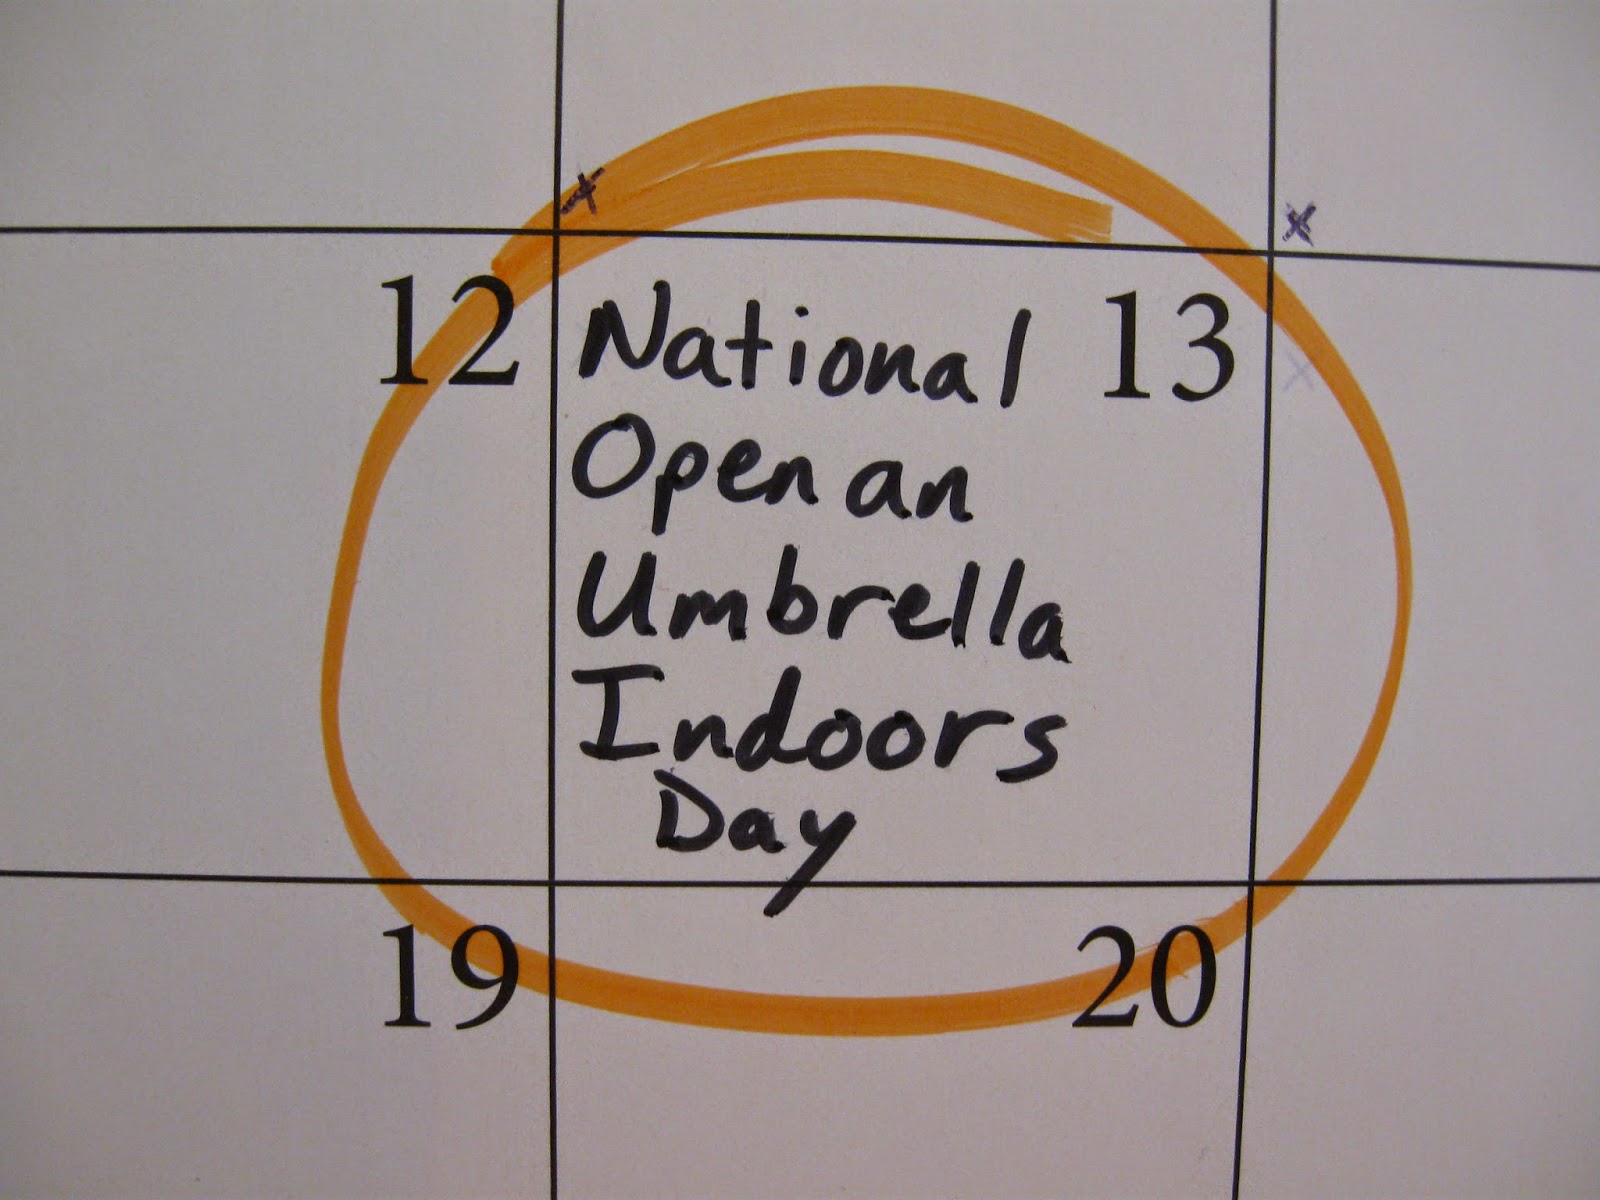 12 National 13
Open an
Umbrella
Indoors
Day
19 20